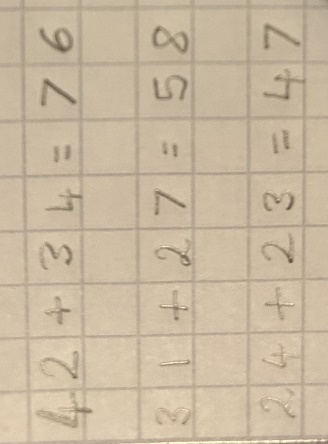 42+34=76
31+27=58
24+23=47